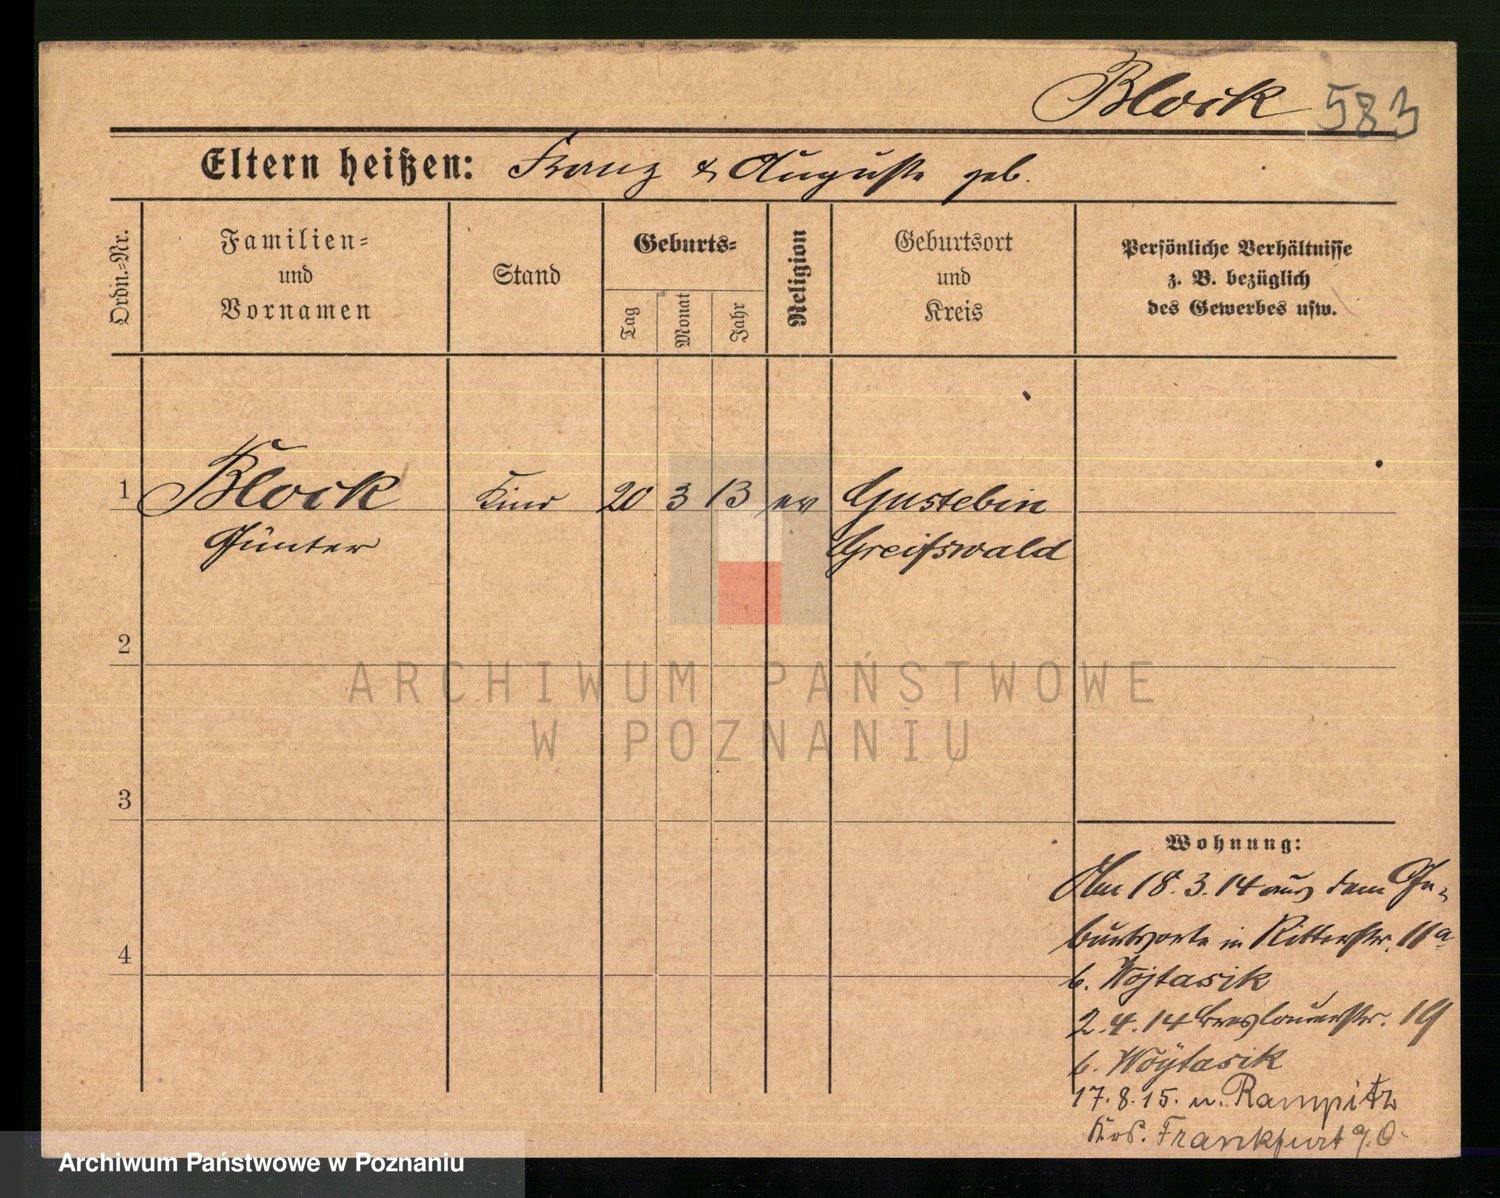 Block 583
Eltern heißen: Franz & Auguste geb.
Ordn.-Nr.
Familien-
und
Vornamen
Stand
Geburts-
Tag
Monat
Jahr
Religion
Geburtsort
und
Kreis
Persönliche Verhältnisse
z. B. bezüglich
des Gewerbes usw.
1 Block Kind 20 3 13 ev Gustebin
Günter Greifswald
2
ARCHIWUM PAŃSTWOWE
W POZNANIU
3
Wohnung:
Am 18.3.14 aus dem Ge-
burtsorte in Ritterstr. 11a
b. Wojtasik
4
2.4.14 Breslauerstr. 19
b. Woÿtasik
17.8.15. n. Rampitz
Krs. Frankfurt a/O.
Archiwum Państwowe w Poznaniu